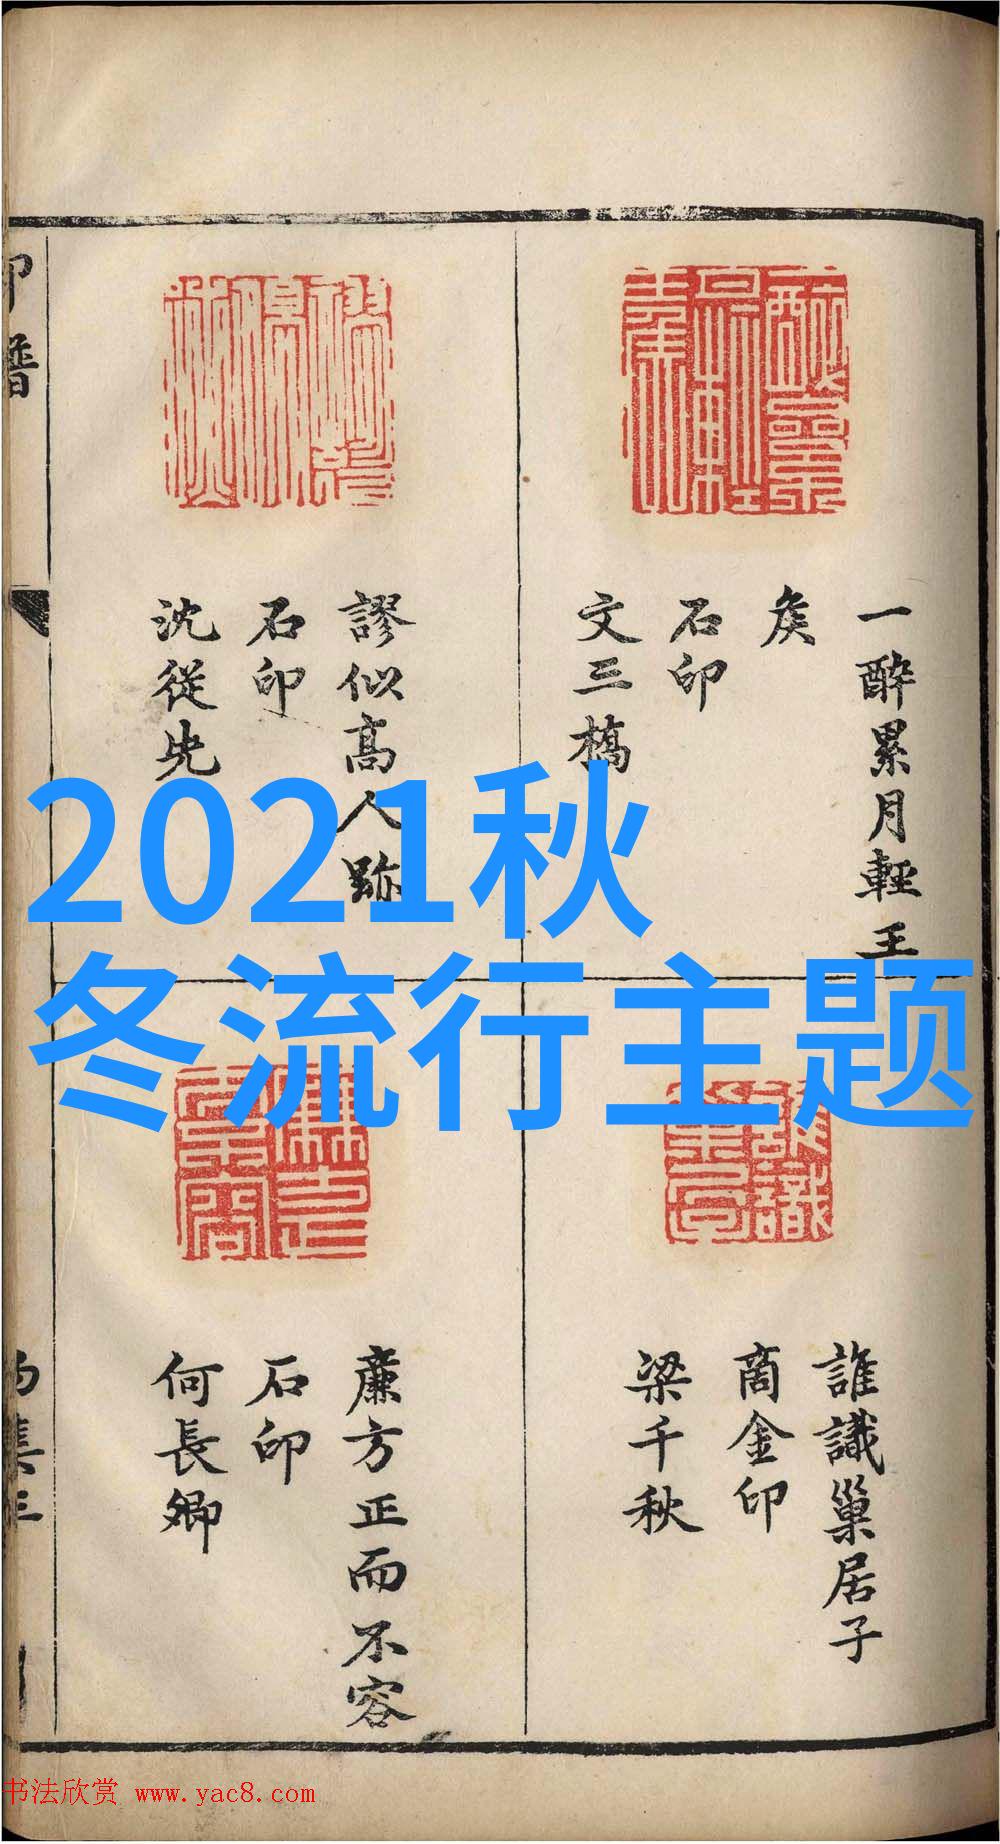 一醉累月輕王
矦
石印
文三橋
謬似高人跡
石印
沈從先
2021秋
冬流行主题
誰識巢居子
商金印
梁千秋
廉方正而不容
石印
何長卿
印譜
书法欣赏 www.yac8.com